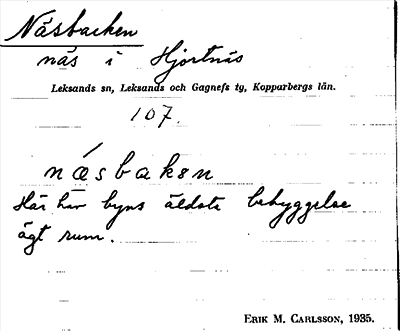 Näsbacken
näs i Hjortnäs
Leksands sn, Leksands och Gagnefs tg, Kopparbergs län.
107.
næ̀sbakɘn
Här har byns äldsta bebyggelse
ägt rum.
ERIK M. CARLSSON, 1935.